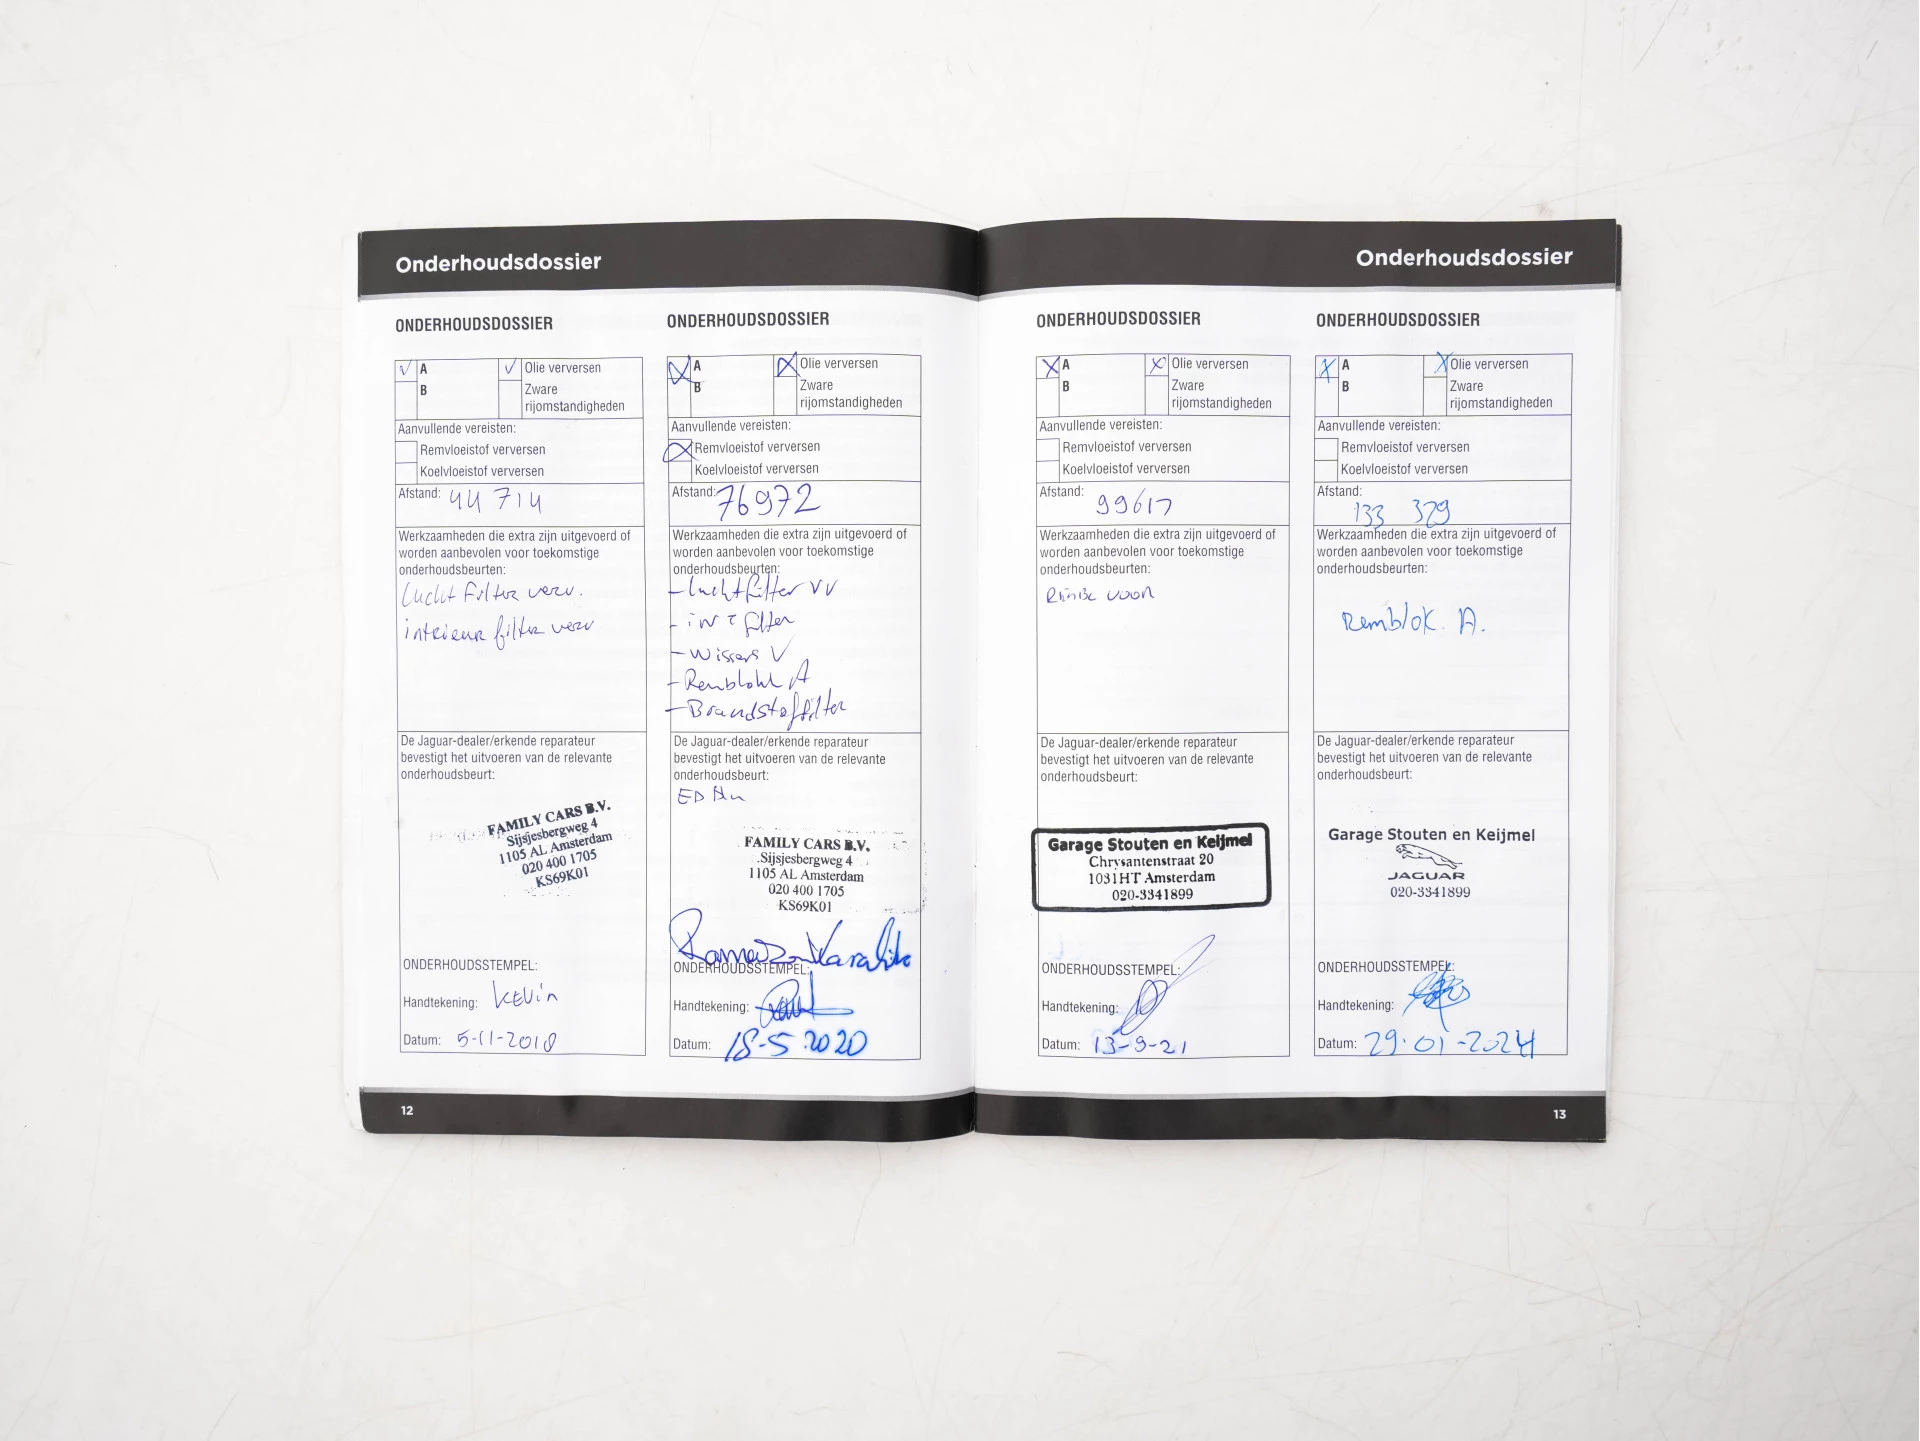 Onderhoudsdossier
ONDERHOUDSDOSSIER
A
Olie verversen
B
Zware
rijomstandigheden
Aanvullende vereisten:
Remvloeistof verversen
Koelvloeistof verversen
Afstand: 44 714
Werkzaamheden die extra zijn uitgevoerd of
worden aanbevolen voor toekomstige
onderhoudsbeurten:
lucht filter verv.
interieur filter verv
De Jaguar-dealer/erkende reparateur
bevestigt het uitvoeren van de relevante
onderhoudsbeurt:
FAMILY CARS B.V.
Sijsjesbergweg 4
1105 AL Amsterdam
020 400 1705
KS69K01
ONDERHOUDSSTEMPEL:
Handtekening: Kevin
Datum: 5-11-2018
ONDERHOUDSDOSSIER
A
Olie verversen
B
Zware
rijomstandigheden
Aanvullende vereisten:
Remvloeistof verversen
Koelvloeistof verversen
Afstand: 76972
Werkzaamheden die extra zijn uitgevoerd of
worden aanbevolen voor toekomstige
onderhoudsbeurten:
- luchtfilter VV
- int filter
- Wissers V
- Remblokk A
- Brandstoffilter
De Jaguar-dealer/erkende reparateur
bevestigt het uitvoeren van de relevante
onderhoudsbeurt:
FAMILY CARS B.V.
Sijsjesbergweg 4
1105 AL Amsterdam
020 400 1705
KS69K01
ONDERHOUDSSTEMPEL:
Handtekening:
Datum: 18-5-2020
12
Onderhoudsdossier
ONDERHOUDSDOSSIER
A
Olie verversen
B
Zware
rijomstandigheden
Aanvullende vereisten:
Remvloeistof verversen
Koelvloeistof verversen
Afstand: 99617
Werkzaamheden die extra zijn uitgevoerd of
worden aanbevolen voor toekomstige
onderhoudsbeurten:
voor
De Jaguar-dealer/erkende reparateur
bevestigt het uitvoeren van de relevante
onderhoudsbeurt:
Garage Stouten en Keijmel
Chrysantenstraat 20
1031HT Amsterdam
020-3341899
ONDERHOUDSSTEMPEL:
Handtekening:
Datum: 13-9-21
ONDERHOUDSDOSSIER
A
Olie verversen
B
Zware
rijomstandigheden
Aanvullende vereisten:
Remvloeistof verversen
Koelvloeistof verversen
Afstand: 133 329
Werkzaamheden die extra zijn uitgevoerd of
worden aanbevolen voor toekomstige
onderhoudsbeurten:
Remblok. A.
De Jaguar-dealer/erkende reparateur
bevestigt het uitvoeren van de relevante
onderhoudsbeurt:
Garage Stouten en Keijmel
JAGUAR
020-3341899
ONDERHOUDSSTEMPEL:
Handtekening:
Datum: 29-01-2024
13